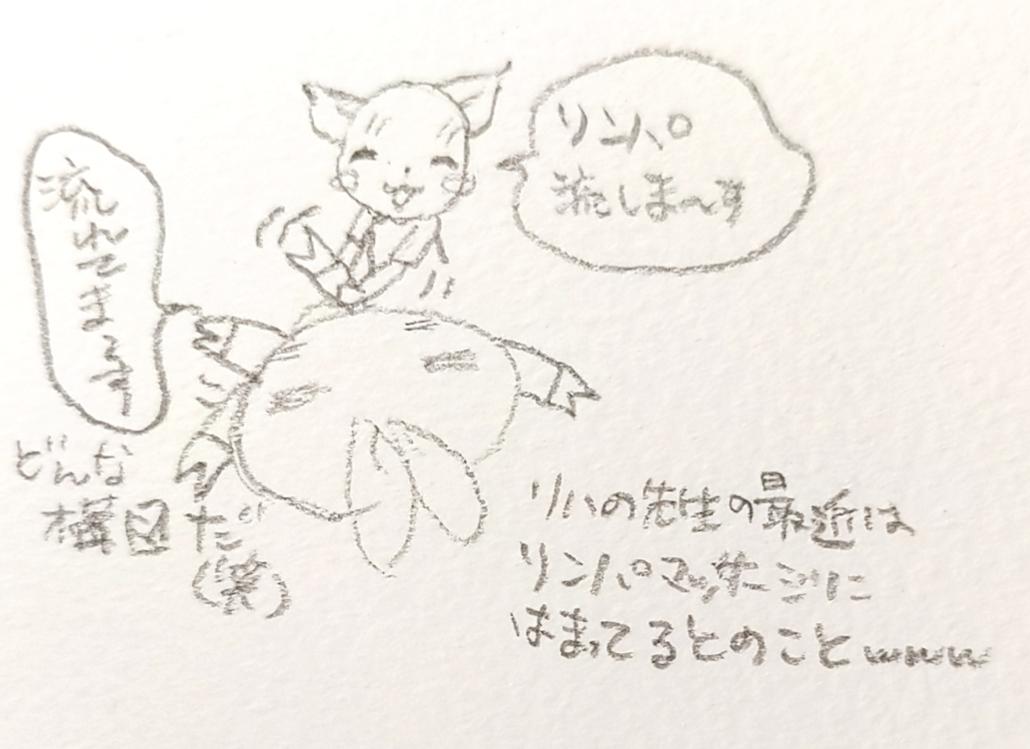 リンパ
流しま〜す
流れてま〜す
どんな
構図だ
(笑)
リハの先生の最近は
リンパマッサージに
はまってるとのことwww